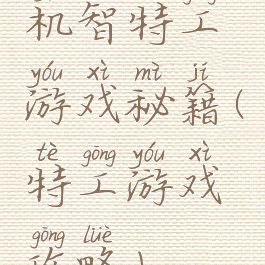 机智特工
yóu xì mì jí
游戏秘籍(
tè gōng yóu xì
特工游戏
gōng lüè
攻略)